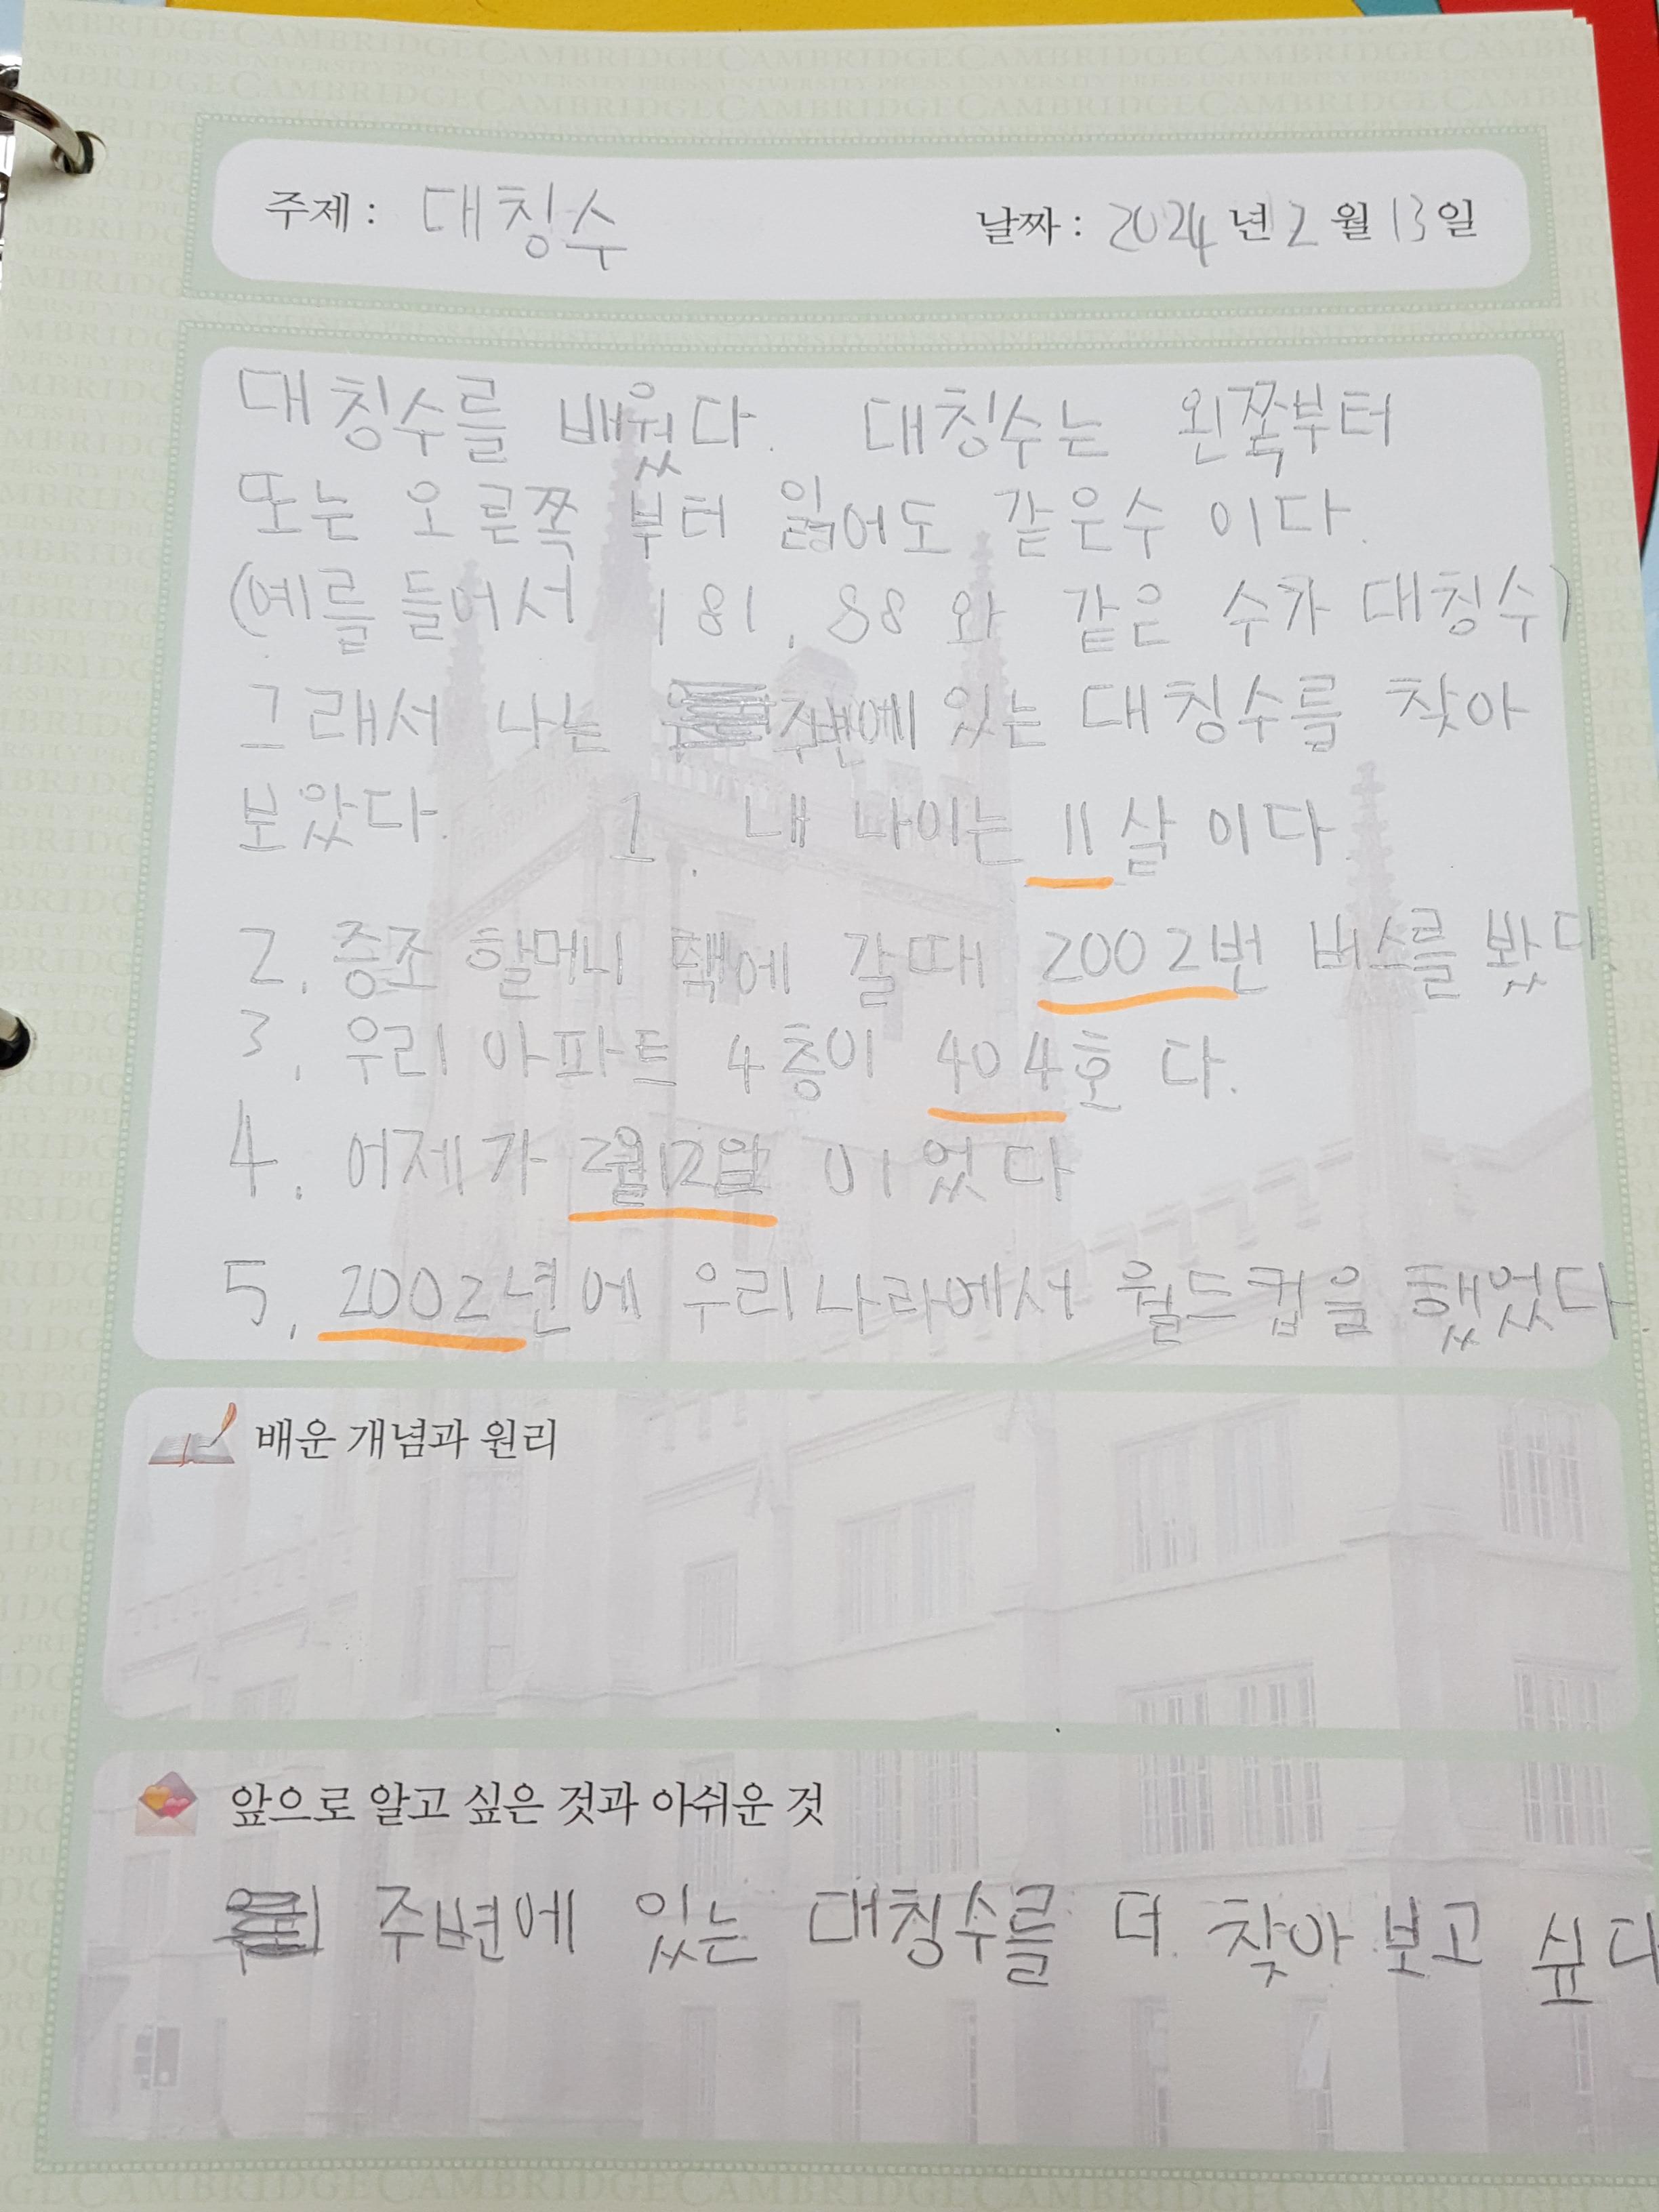 주제 : 대칭수 날짜 : 2024 년 2 월 13 일
대칭수를 배웠다. 대칭수는 왼쪽부터
또는 오른쪽 부터 읽어도 같은수 이다.
(예를 들어서 181, 88 와 같은 수가 대칭수)
그래서 나는 주변에 있는 대칭수를 찾아
보았다. 1. 내 나이는 11살 이다
2. 증조 할머니 댁에 갈때 2002번 버스를 봤다.
3. 우리 아파트 4층이 404호 다.
4. 어제가 2월12일 이 었다
5. 2002년에 우리나라에서 월드컵을 했었다.
배운 개념과 원리
앞으로 알고 싶은 것과 아쉬운 것
주변에 있는 대칭수를 더 찾아 보고 싶다